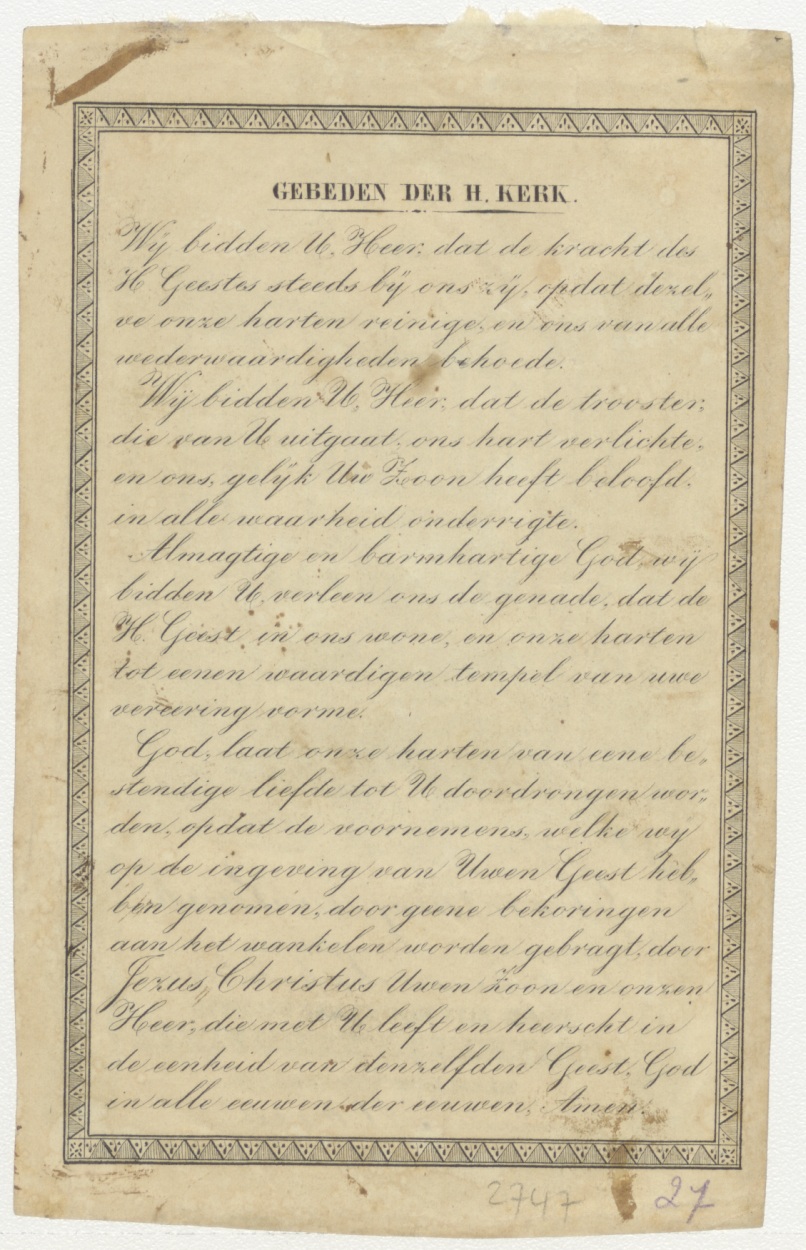 GEBEDEN DER H. KERK.
Wij bidden U, Heer, dat de kracht des
H Geestes steeds bij ons zij, opdat dezel„
ve onze harten reinige, en ons van alle
wederwaardigheden behoede.
Wij bidden U, Heer, dat de trooster,
die van U uitgaat, ons hart verlichte,
en ons, gelijk Uw Zoon heeft beloofd,
in alle waarheid onderrigte.
Almagtige en barmhartige God, wij
bidden U, verleen ons de genade, dat de
H. Geest in ons wone, en onze harten
tot eenen waardigen tempel van uwe
vereering vorme.
God, laat onze harten van eene be„
stendige liefde tot U doordrongen wor„
den, opdat de voornemens, welke wij
op de ingeving van Uwen Geest heb„
ben genomen, door geene bekoringen
aan het wankelen worden gebragt, door
Jezus, Christus Uwen Zoon en onzen
Heer, die met U leeft en heerscht in
de eenheid van denzelfden Geest, God
in alle eeuwen der eeuwen, Amen.
2747 27